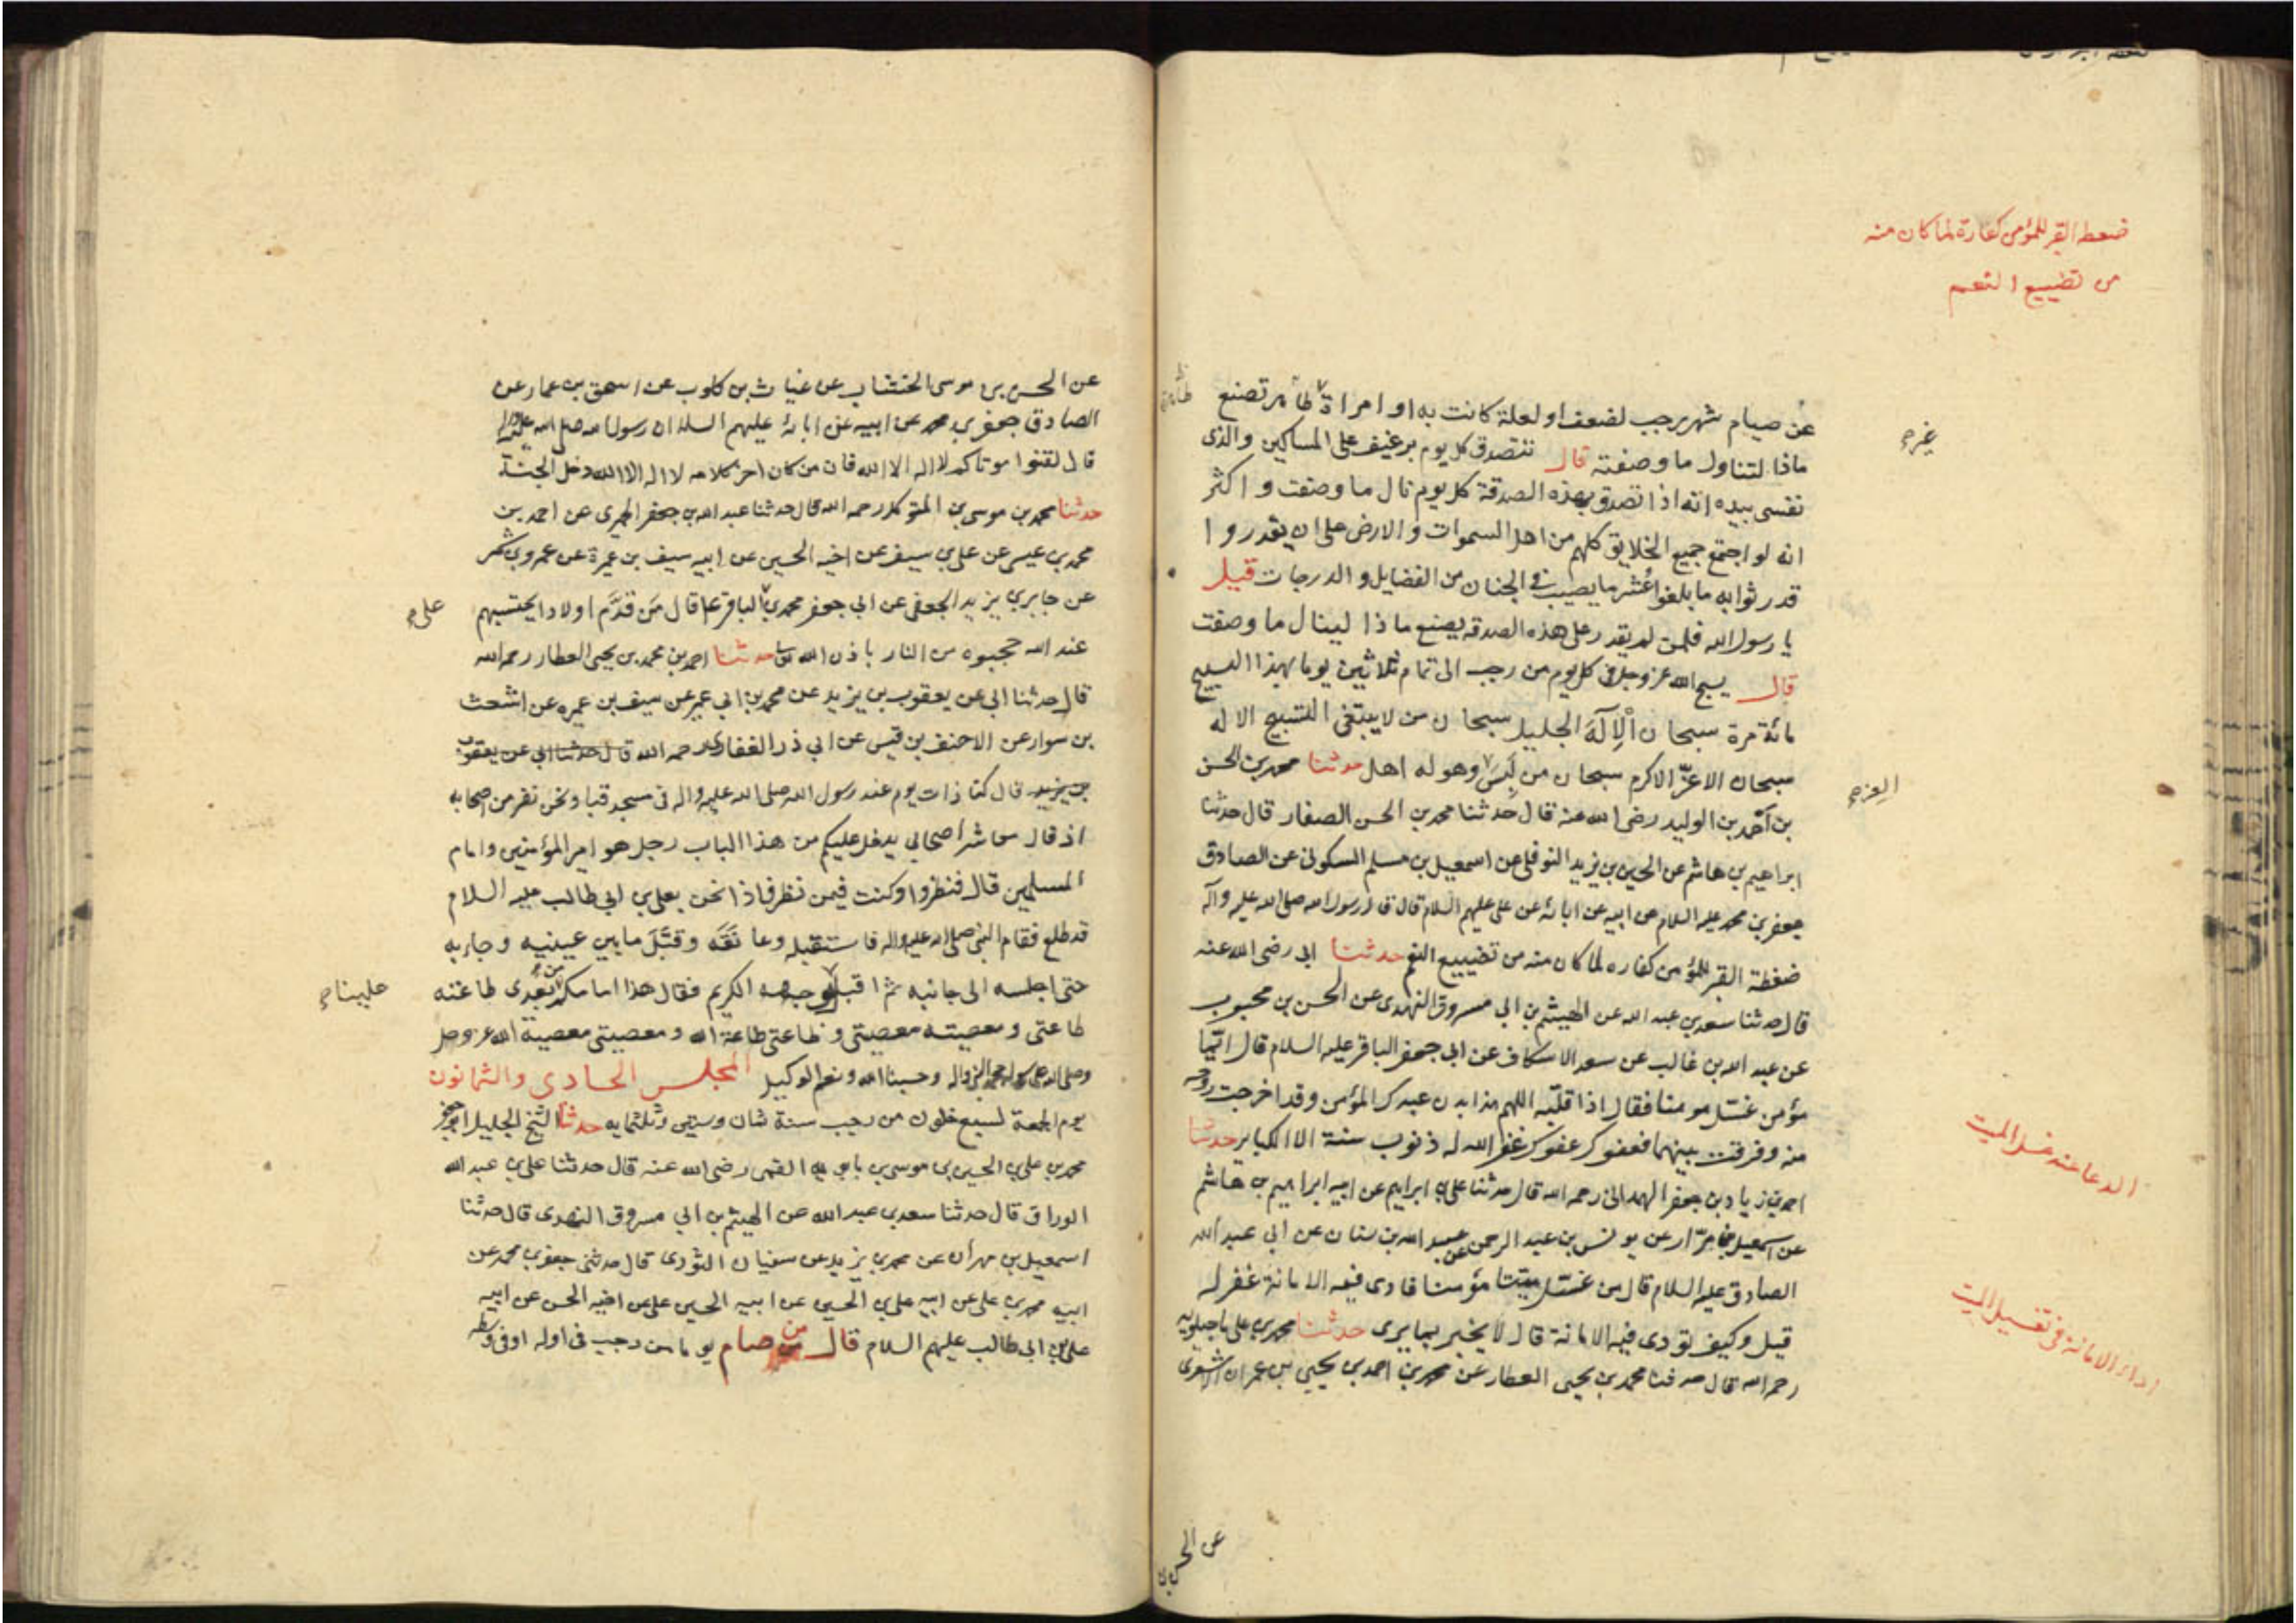 ضغطه القبر للمؤمن كفارة لما كان منه
من تضييع النعم
عن صيام شهر رجب لضعف او لعلة كانت به او امراة طاهر تصنع
ماذا لتناول ما وصفته قال تتصدق كل يوم برغيف على المساكين والذى
نفسى بيده انه اذا تصدق بهذه الصدقة كل يوم نال ما وصفت و اكثر
انه لو اجتمع جميع الخلايق كلهم من اهل السموات و الارض على ان يقدروا
قدر ثوابه ما بلغوا عشر ما يصيب فى الجنان من الفضايل و الدرجات قيل
يا رسول الله فلمن لم يقدر على هذه الصدقه يصنع ماذا لينال ما وصفت
قال يسبح الله عز وجل فى كل يوم من رجب الى تمام ثلاثين يوما بهذا التسبيح
مائة مرة سبحان الْاِلَهَ الجليل سبحان من لا ينبغى التسبيح الا له
سبحان الاعزّ الاكرم سبحان من لَبِسَ وهو له اهل حدثنا محمد بن الحسن
بن احمد بن الوليد رضى الله عنه قال حدثنا محمد بن الحسن الصفار قال حدثنا
ابراهيم بن هاشم عن الحسين بن يزيد النوفلى عن اسمعيل بن مسلم السكونى عن الصادق
جعفر بن محمد عليه السلام عن ابيه عن ابائه عن على عليهم السلام قال قال رسول الله صلى الله عليه وآله
ضغطة القبر للمؤمن كفاره لما كان منه من تضييع النعم حدثنا ابى رضى الله عنه
قال حدثنا سعد بن عبد الله عن الهيثم بن ابى مسروق النهدى عن الحسن بن محبوب
عن عبد الله بن غالب عن سعد الاسكاف عن ابى جعفر الباقر عليه السلام قال ايّما
مؤمن غسّل مومنا فقال اذا قلّبه اللهم هذا بدن عبدك المؤمن وقد اخرجت روحه
منه وفرقت بينهما فعفوك عفوك غفر الله له ذنوب سنة الا الكباير حدثنا
احمد بن زياد بن جعفر الهمدانى رحمه الله قال حدثنا على بن ابراهيم عن ابيه ابراهيم بن هاشم
عن اسمعيل بن مرّار عن يونس بن عبد الرحمن عن عبد الله بن سنان عن ابى عبد الله
الصادق عليه السلام قال من غسّل ميتا مؤمنا فادى فيه الامانة غفر له
قيل وكيف يؤدى فيه الامانة قال لا يخبر بما يرى حدثنا محمد بن على ماجيلويه
رحمه الله قال حدثنا محمد بن يحيى العطار عن محمد بن احمد بن يحيى بن عمران الاشعرى
غيره
طاهرة
الدعا عند غسل الميت
اداء الامانة فى تغسيل الميت
عن الحسن بن
عن الحسن بن موسى الخشاب عن غياث بن كلوب عن اسحق بن عمار عن
الصادق جعفر بن محمد عن ابيه عن ابائه عليهم السلم ان رسول الله صلى الله عليه واله
قال لقنوا موتاكم لا اله الا الله فان من كان اخر كلامه لا اله الا الله دخل الجنة
حدثنا محمد بن موسى بن المتوكل رحمه الله قال حدثنا عبد الله بن جعفر الحميرى عن احمد بن
محمد بن عيسى عن على بن سيف عن اخيه الحسين عن ابيه سيف بن عميرة عن عمرو بن شمر
عن جابر بن يزيد الجعفى عن ابى جعفر محمد بن الباقر ع قال مَن قَدَّم اولادا يحتسبهم
عند الله حجبوه من النار باذن الله تعا حدثنا احمد بن محمد بن يحيى العطار رحمه الله
قال حدثنا ابى عن يعقوب بن يزيد عن محمد بن ابى عمير عن سيف بن عميره عن اشعث
بن سوار عن الاحنف بن قيس عن ابى ذر الغفارى رحمه الله قال حدثنا ابى عن يعقوب
بن يزيد قال كنا ذات يوم عند رسول الله صلى الله عليه واله فى مسجد قبا ونحن نفر من اصحابه
اذ قال معاشر اصحابى يدخل عليكم من هذا الباب رجل هو امير المؤمنين وامام
المسلمين قال فنظروا وكنت فيمن نظر فاذا نحن بعلى بن ابى طالب عليه السلام
قد طلع فقام النبى صلى الله عليه واله فاستقبله وعانَقَه وقبَّلَ ما بين عينيه وجاء به
حتى اجلسه الى جانبه ثم اقبل بوجهه الكريم فقال هذا امامكم من بعدى طاعته
طاعتى ومعصيته معصيتى وطاعتى طاعة الله ومعصيتى معصية الله عز وجل
وصلى الله على رسوله محمد النبى واله وحسبنا الله ونعم الوكيل المجلس الحادى والثمانون
يوم الجمعة لسبع خلون من رجب سنة ثمان وستين وثلثمايه حدثنا الشيخ الجليل ابو جعفر
محمد بن على بن الحسين بن موسى بن بابويه القمى رضى الله عنه قال حدثنا على بن عبد الله
الوراق قال حدثنا سعد بن عبد الله عن الهيثم بن ابى مسروق النهدى قال حدثنا
اسمعيل بن مهران عن محمد بن يزيد عن سفيان الثورى قال حدثنى جعفر بن محمد عن
ابيه محمد بن على عن ابيه على بن الحسين عن ابيه الحسين بن على عن اخيه الحسن عن ابيه
على بن ابى طالب عليهم السلام قال من صام يوما من رجب فى اوله او فى وسطه
على
علينا